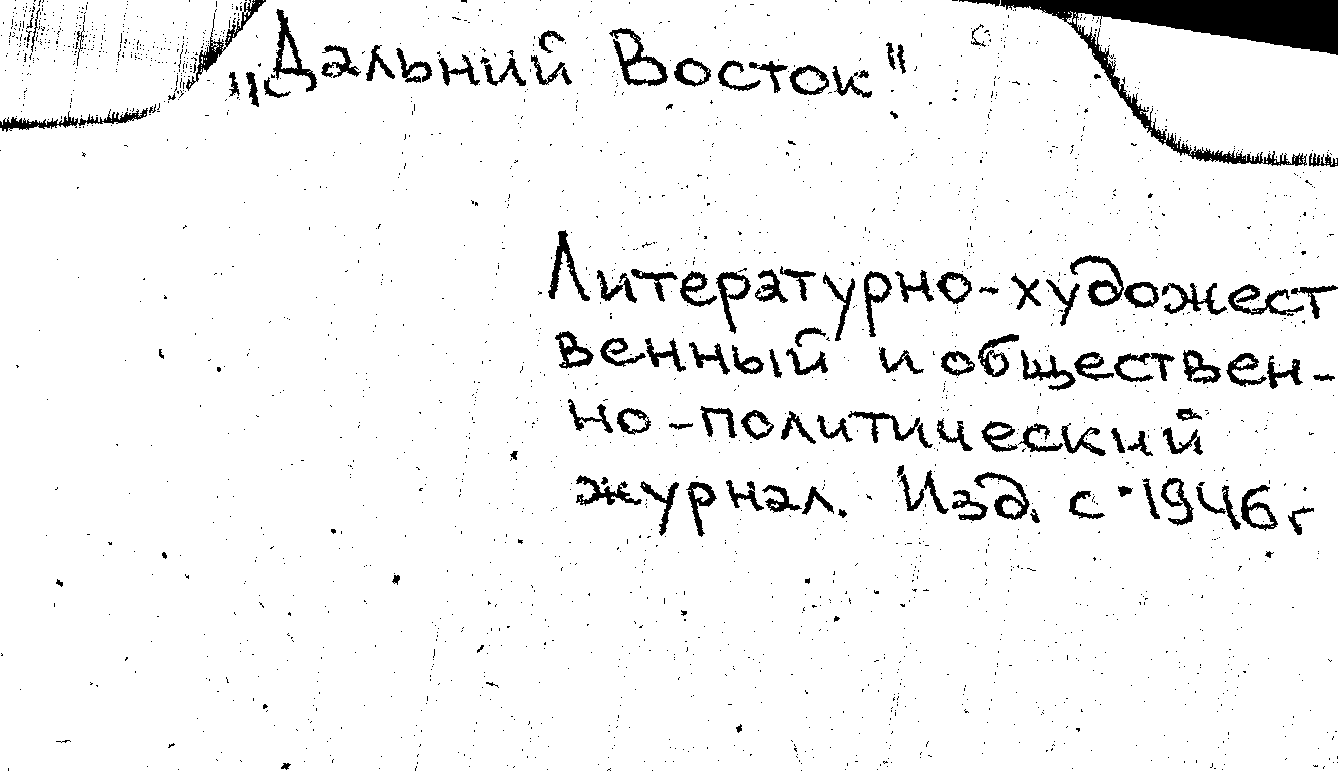 „Дальний Восток"
Литературно-художест
венный и обществен-
но-политический
журнал. Изд. с 1946г